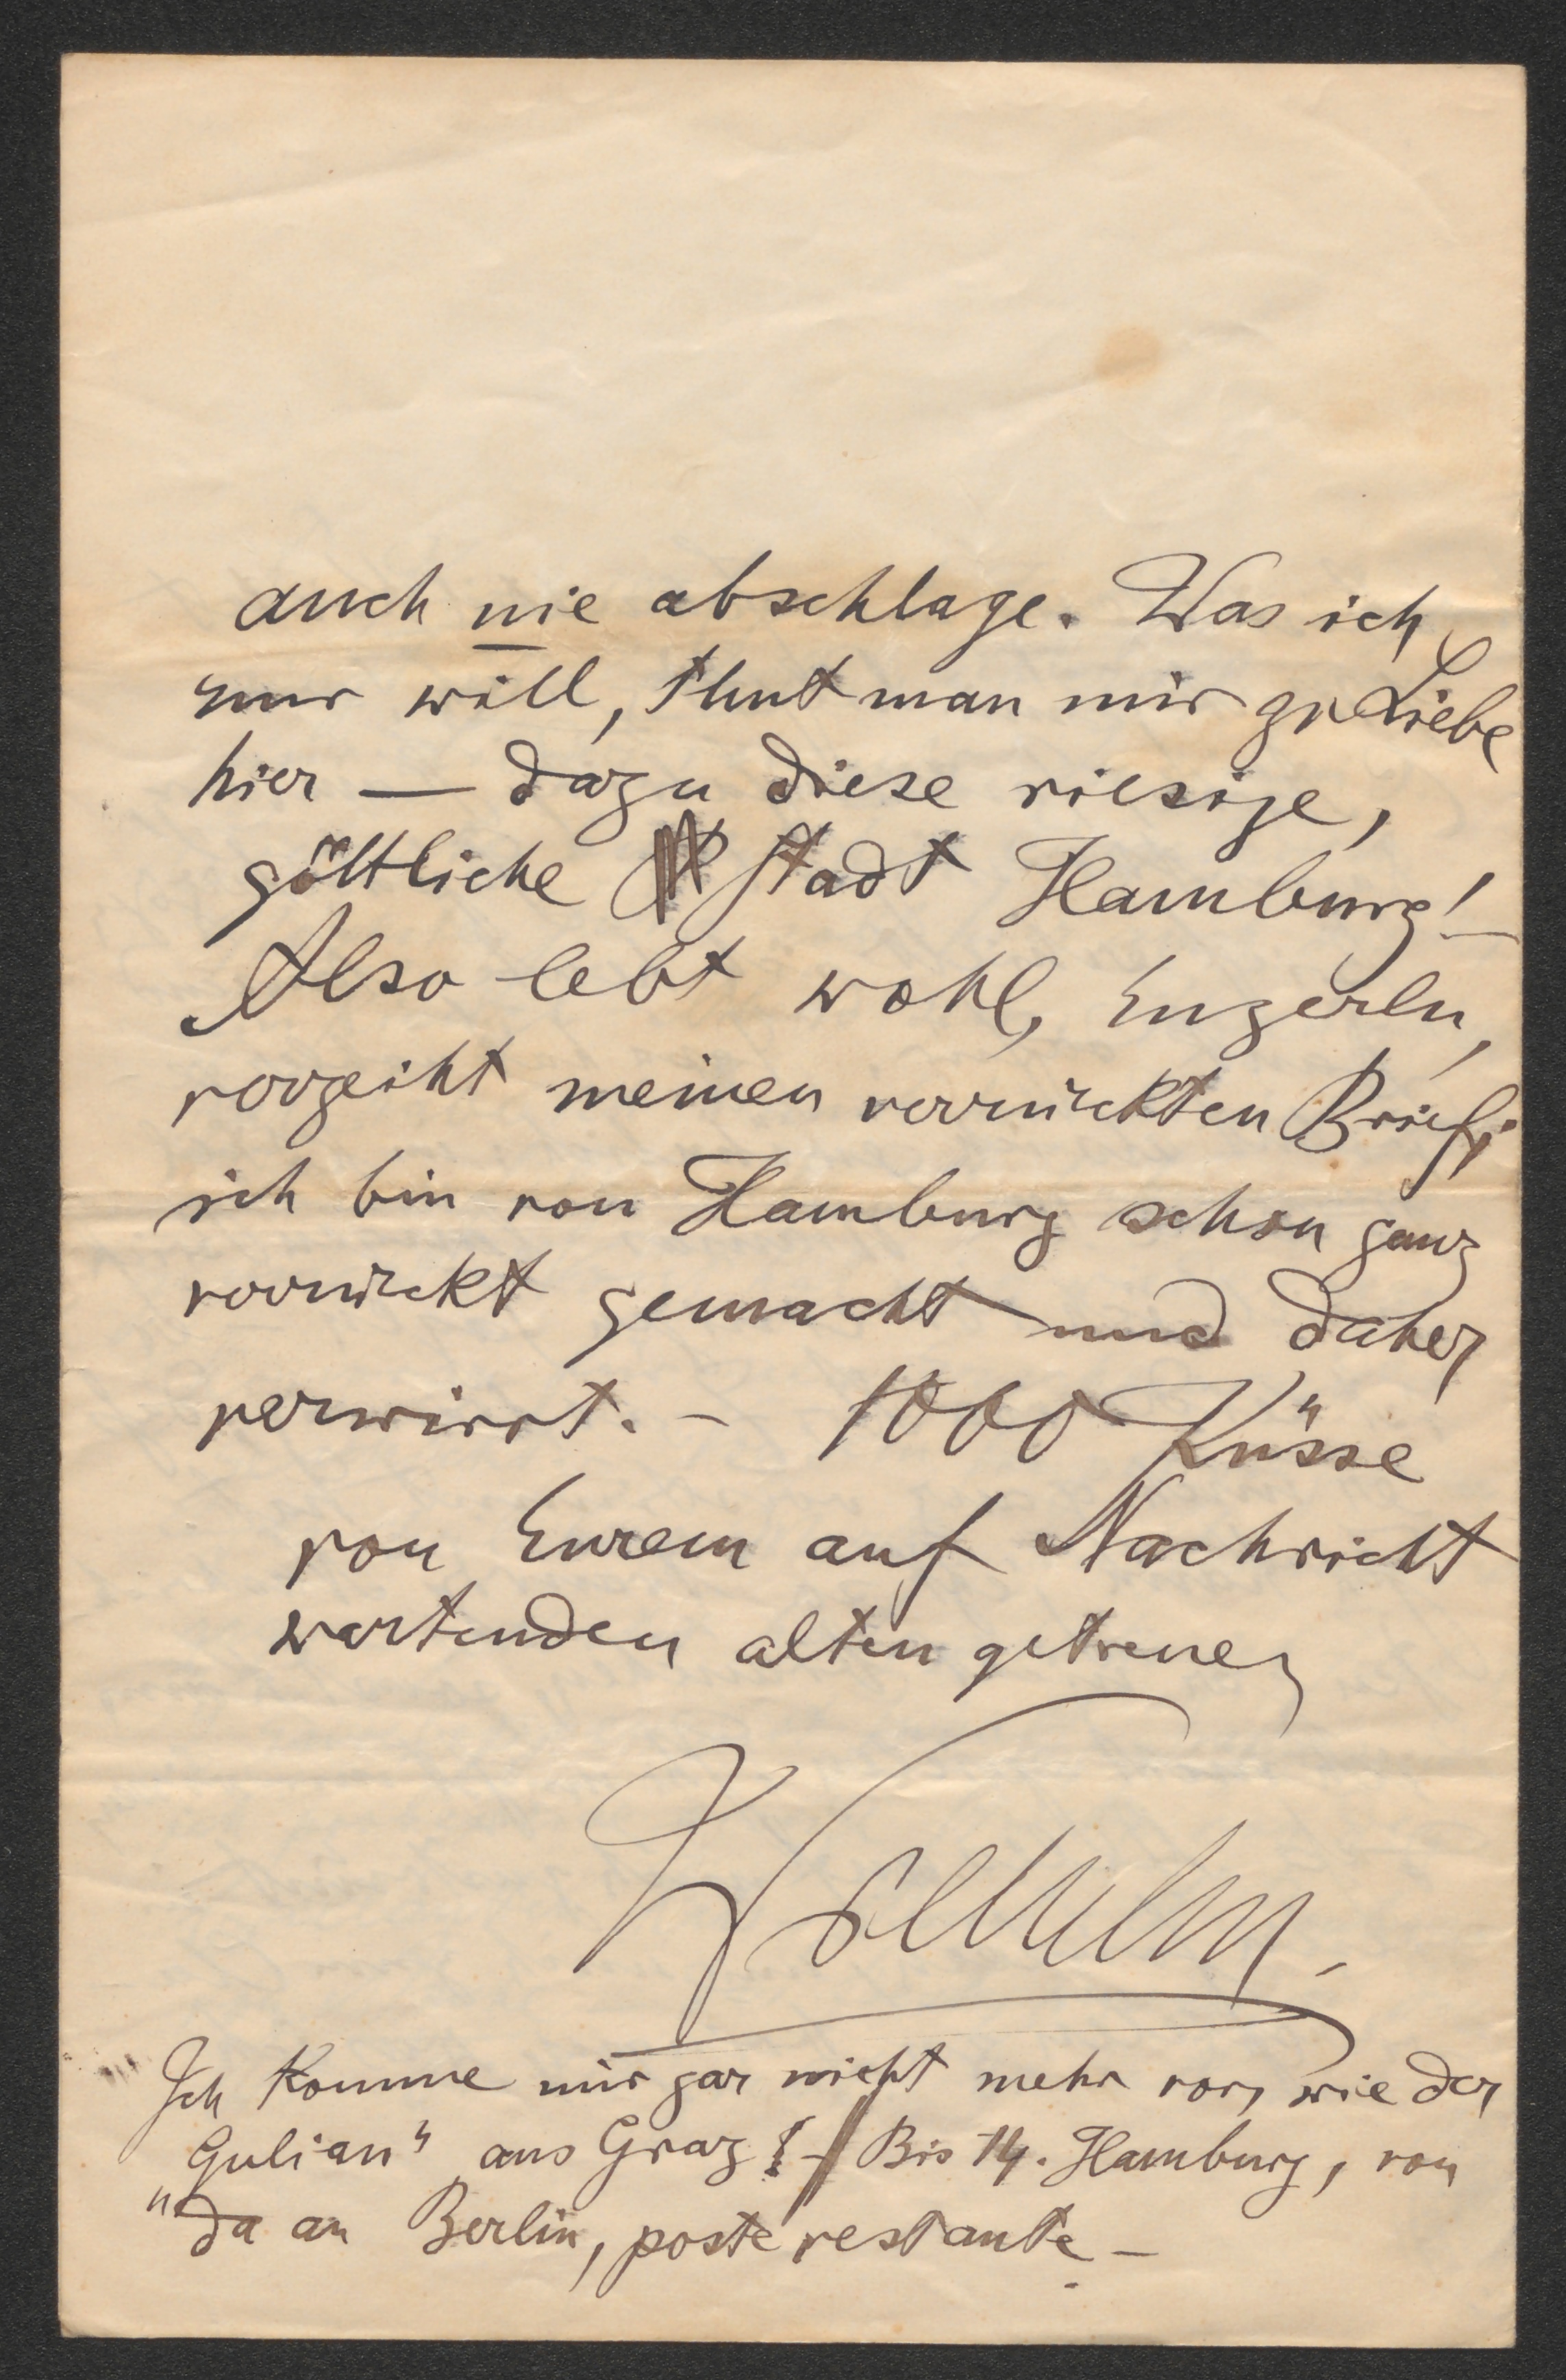 auch nie abschlage. Was ich
nur will, thut man mir zu Liebe
hier — dazu diese riesige,
göttliche Stadt Hamburg! —
Also lebt wohl, Enzerln,
verzeiht meinen verrückten Brief;
ich bin von Hamburg schon ganz
verrückt gemacht und daher
verwirrt. – 1000 Küsse
von Eurem auf Nachricht
wartenden alten getreuen
Wilhelm.
Ich komme mir gar nicht mehr vor, wie der
„Gulian“ aus Graz! – Bis 14. Hamburg, von
da an Berlin, poste restante –